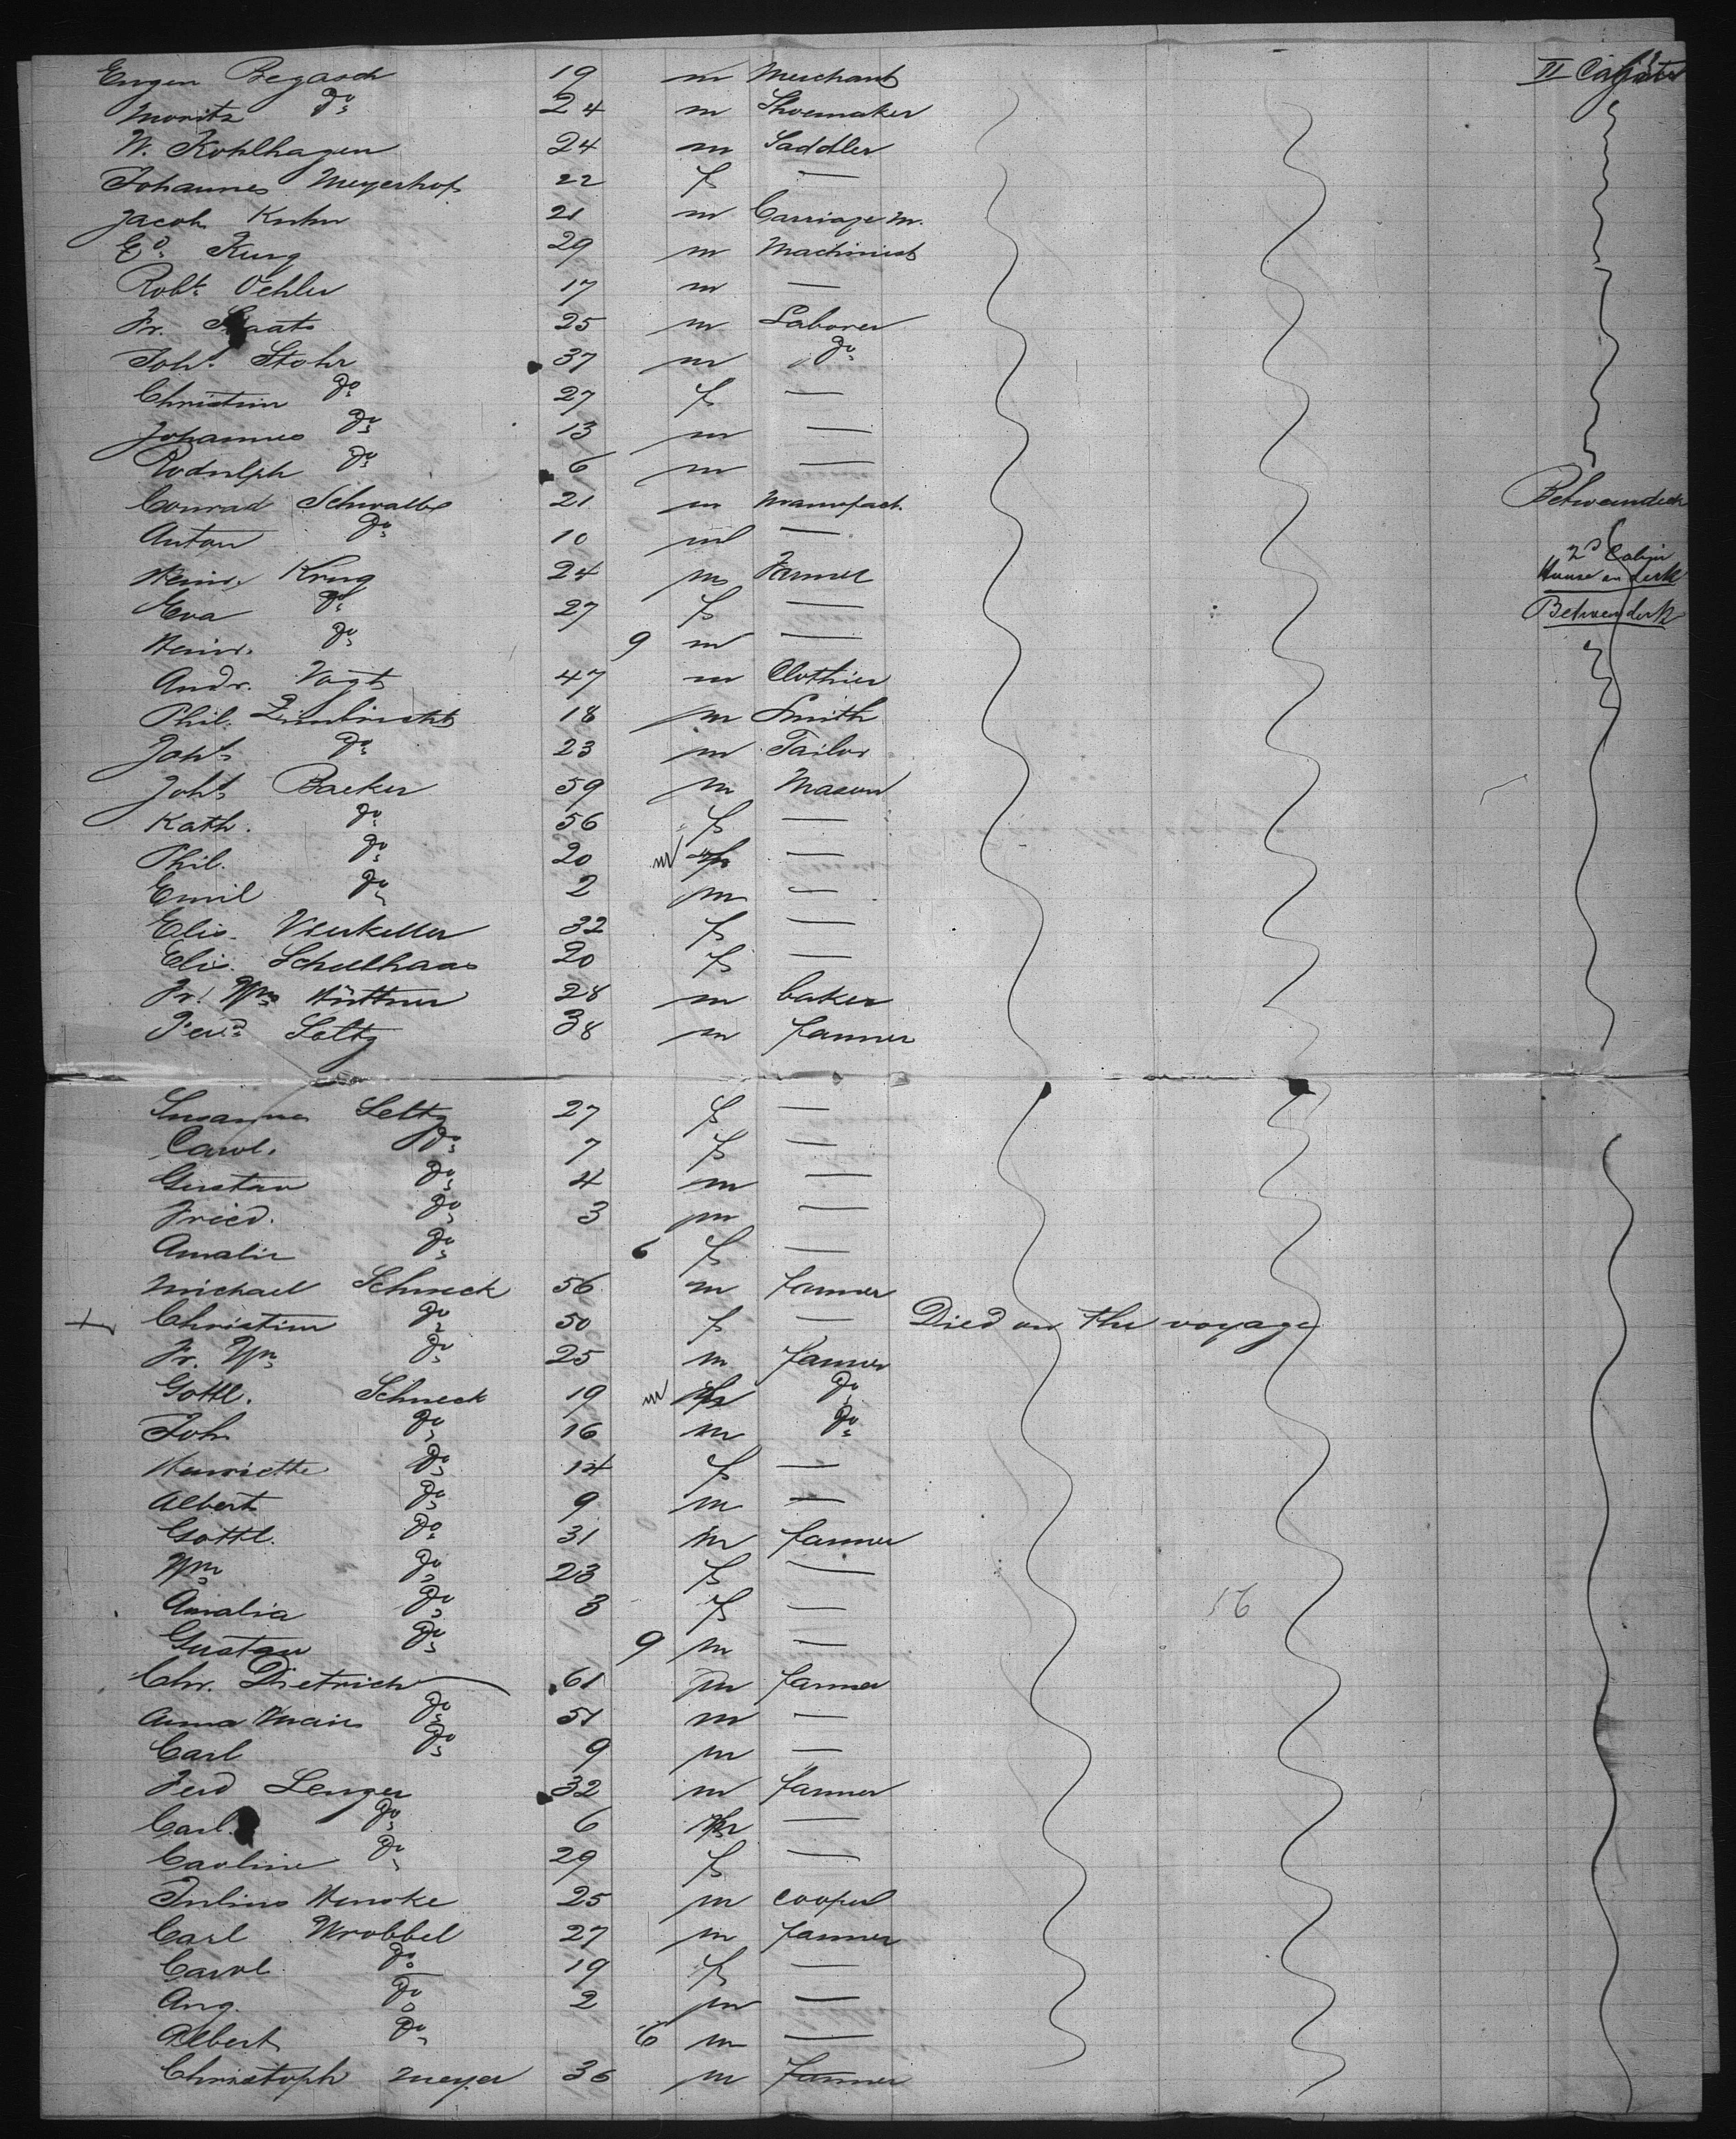 Eugen Begasch 19 m Merchant II Cajüte
Moritz do 24 m Shoemaker
W. Kohlhagen 24 m Saddler
Johannes Meyerhof 22 f —
Jacob Kuhn 21 m Carriage m.
Ed. Kurg 29 m Machinist
Robt. Oehler 17 m —
Fr. Staats 25 m Laborer
Joh. Stohr 37 m do
Christin do 27 f —
Johannes do 13 m —
Rodulph do 6 m —
Conrad Schwalbe 21 m Manufact. Betweendeck
Anton do 10 m —
Heinr. Krug 24 m Farmer 2d Cabin House on deck
Eva do 27 f — Betweendeck
Heinr. do 9 m —
Andr. Vogt 47 m Clothier
Phil. Zimbricht 18 m Smith
Joh. do 23 m Tailor
Joh. Backer 59 m Mason
Kath. do 56 f —
Phil. do 20 m —
Emil do 2 m —
Elis. 32 f —
Elis. Scheelhaas 20 f —
Fr. Wm. Hüttner 28 m baker
Ferd. Seltz 38 m farmer
Susanna Seltz 27 f —
Carol. do 7 f —
Gustav do 4 m —
Fried. do 3 m —
Amalie do 6 f —
Michael Schneck 56 m farmer
+ Christine do 50 f — Died on the voyage
Fr. Wm. do 25 m farmer
Gottl. Schneck 19 m do
Joh. do 16 m do
Henriette do 14 f —
Albert do 9 m —
Gottl. do 31 m farmer
Wm. do 23 f —
Amalia do 3 f — 56
Gustav do 9 m —
Chr. Dietrich 61 m farmer
Anna Marie do 51 m —
Carl do 9 m —
Ferd Lenger 32 m farmer
Carl. do 6 m —
Caroline do 29 f —
Julius Henske 25 m cooper
Carl Wrobbel 27 m farmer
Carol do 19 f —
Aug. do 2 m —
Albert do 6 m —
Christoph Meyer 36 m farmer